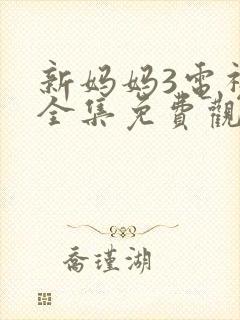 新妈妈3電衤
全集免費觀
喬瑾湖